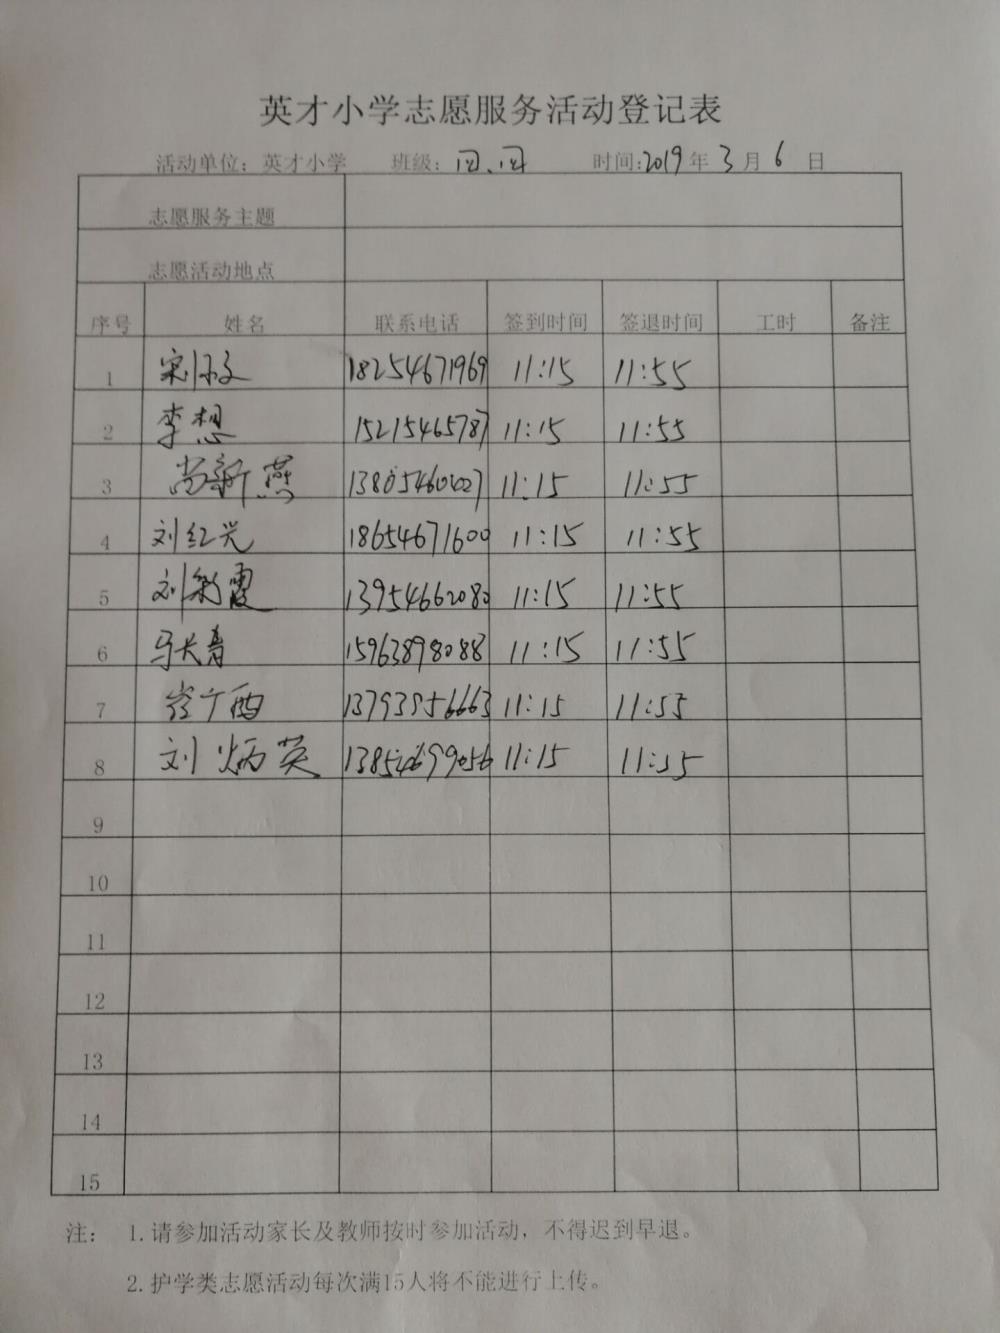 英才小学志愿服务活动登记表
活动单位：英才小学 班级：四.四 时间:2019年3月6日
志愿服务主题
志愿活动地点
序号 姓名 联系电话 签到时间 签退时间 工时 备注
1 18254671969 11:15 11:55
2 李想 15215465787 11:15 11:55
3 尚新燕 11:15 11:55
4 刘红兴 18654671600 11:15 11:55
5 刘彩霞 13954662080 11:15 11:55
6 马长青 15963898088 11:15 11:55
7 11:15 11:55
8 刘炳英 11:15 11:55
9
10
11
12
13
14
15
注： 1.请参加活动家长及教师按时参加活动，不得迟到早退。
2.护学类志愿活动每次满15人将不能进行上传。